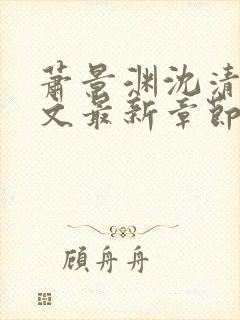 萧景渊沈清
文最新章节
顾舟舟